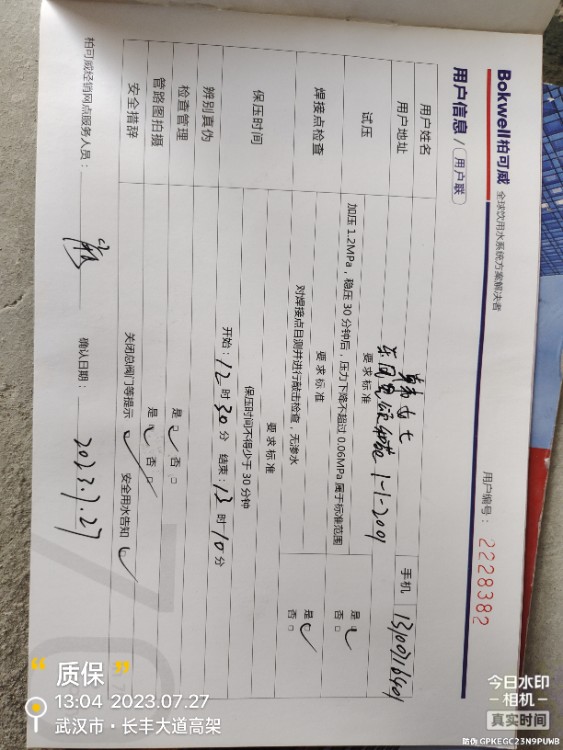 Bokwell柏可威 全球饮用水系统方案解决者
用户信息 / 用户联
用户编号: 2228382
用户姓名 女士 手机
用户地址 1-1-2001
试压 要求标准
加压 1.2MPa,稳压 30 分钟后,压力下降不超过 0.06MPa 属于标准范围 是 ✓ 否 □
焊接点检查 要求标准
对焊接点目测并进行敲击检查,无渗水 是 ✓ 否 □
保压时间 要求标准
保压时间不得少于 30 分钟
开始:12 时 30 分 结束:13 时 10 分
辨别真伪 是 ✓ 否 □
检查管理 是 ✓ 否 □
管路图拍摄
安全措辞 关闭总阀门等提示 ✓ 安全用水告知 ✓
柏可威经销网点服务人员: 确认日期: 2023.7.27
质保
13:04 2023.07.27
武汉市·长丰大道高架
今日水印
相机
真实时间
防伪 GPKEGC23N9PUWB